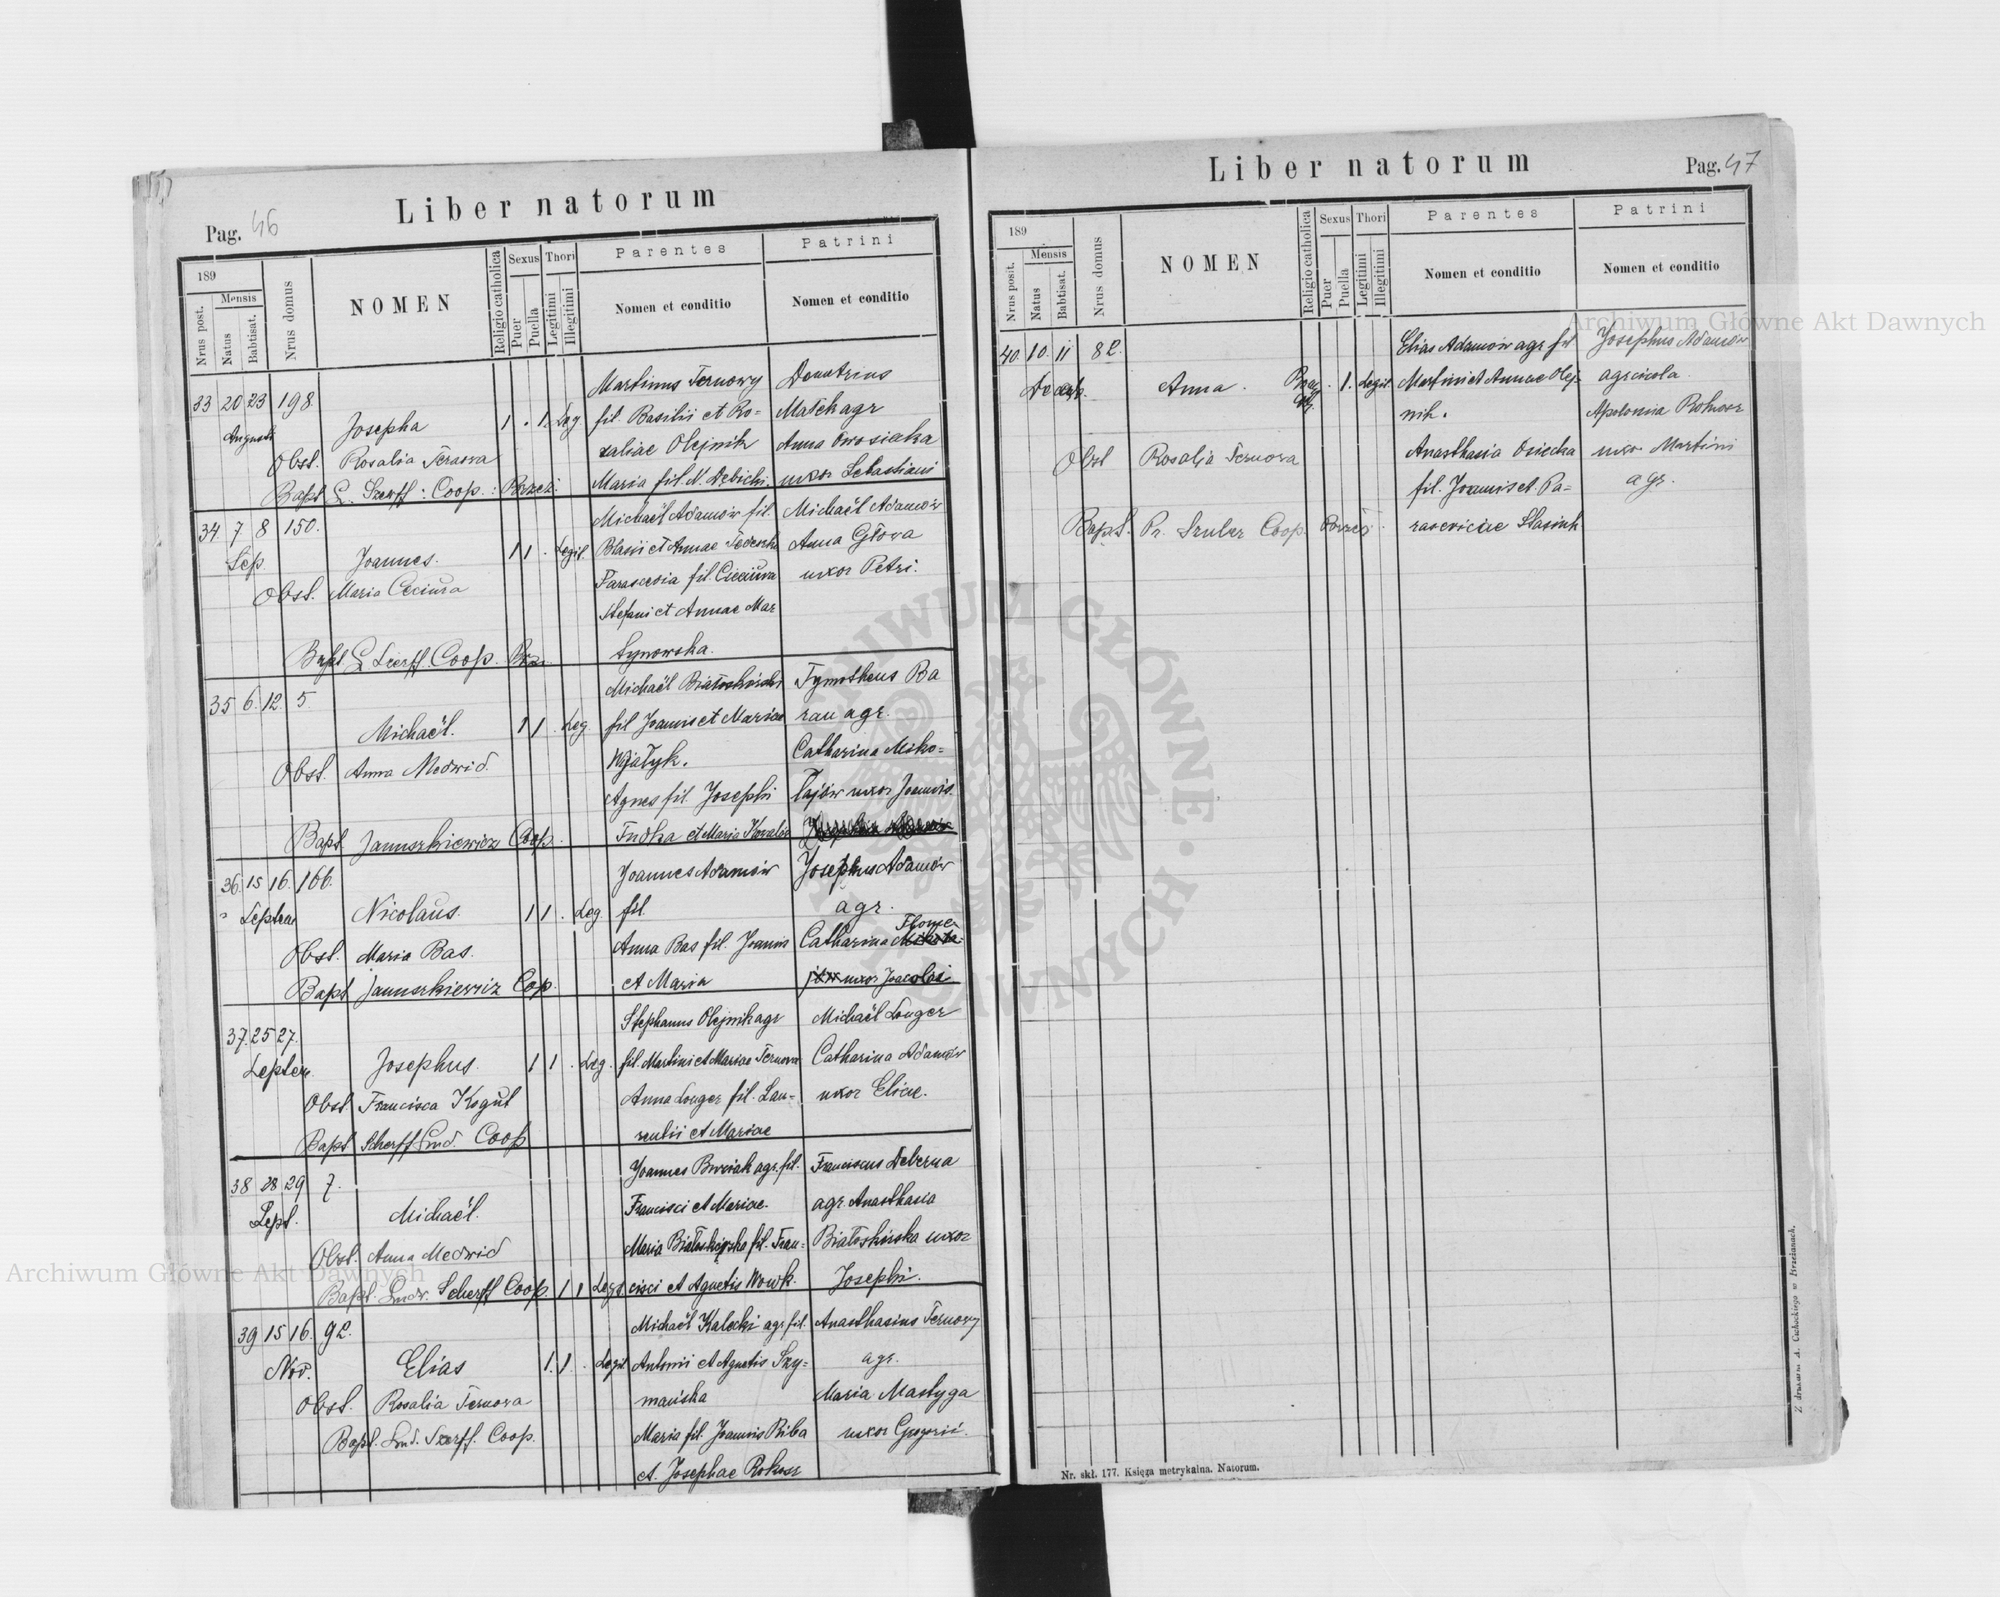 Pag. 46
Liber natorum
189
Nrus post.
Mensis
Natus
Babtisat.
Nrus domus
NOMEN
Religio catholica
Sexus
Puer
Puella
Thori
Legitimi
Illegitimi
Parentes
Nomen et conditio
Patrini
Nomen et conditio
33 20 23 198
Augusti
Josepha
1 . 1. Leg
Obst. Rosalia
Bapt. Szerff: Coop.:
Martinus Ternowy
fil Basilii et Ro=
saliae Olejnik
Maria fil. N. Debicki
Demetrius
Małek agr
Anna
uxor Sebastiani
34 7 8 150.
Sep.
Joannes.
1 1 . Legit
Obst. Maria Ceciura
Bapt Coop.
Michaël Adamów fil.
Blasii et Annae
fil.
Stefani et Annae Mar
tynowska.
Michaël Adamów
Anna Głova
uxor Petri.
35 6. 12. 5.
Michaël.
1 1 . Leg.
Obst. Anna Medwid.
Bapt. Januszkiewicz Coop.
Michaël
fil Joannis et Mariae
Agnes fil. Josephi
Tudka et Maria
Tymotheus Ba
ran agr.
Catharina Miko=
łajów uxor Joannis.
36. 15 16. 166.
Nicolaus.
1 1 . Leg.
Obst. Maria Bas.
Bapt Januszkiewicz Cop.
Joannes Adamów
fil.
Anna Bas fil. Joannis
et Maria
Josephus Adamów
agr.
Catharina
uxor
37. 25 27.
Septem.
Josephus.
1 1 . Leg.
Obst. Francisca Kogut
Bapt Scherff Lud. Coop
Stephanus Olejnik agr
fil. Martini et Mariae Ternova
Anna Longer fil. Lau=
rentii et Mariae
Michaël Longer
Catharina Adamów
uxor Eliae.
38 28 29 7.
Sept.
Michaël.
Obst. Anna Medwid
Bapt. Ludw. Scherff Coop. 1 1
Joannes agr. fil.
Francisci et Mariae.
Maria Białoskórska fil. Fran=
cisci et Agnetis Nowk.
Franciscus Deberna
agr. Anasthasia
Białoskórska uxor
Josephi.
39 15 16. 92.
Nov.
Elias
1. 1. . Legit
Obst. Rosalia Ternova
Bapt. Lud. Szerff. Coop.
Michaël Kalecki agr. fil.
Antonii et Agnetis Szy=
mańska
Maria fil. Joannis Riba
et. Josephae Rokosz
Anasthasius Ternowy
agr.
Maria Mastyga
uxor Gregorii.
Liber natorum
Pag. 47
189
Nrus posit.
Mensis
Natus
Babtisat.
Nrus domus
NOMEN
Religio catholica
Sexus
Puer
Puella
Thori
Legitimi
Illegitimi
Parentes
Nomen et conditio
Patrini
Nomen et conditio
40. 10. 11 82.
Anna.
. 1. Legit
Obst Rosalja Ternova
Bapt. Pr. Szuler Coop.
Elias Adamów agr. fil
Martini et Annae Olej=
nik.
Anasthasia Osiecka
fil. Joannis et. Pa=
rasceviae Stasink
Josephus Adamów
agricola.
Apolonia Rokosz
uxor Martini
agr.
Nr. skł. 177. Księga metrykalna. Natorum.
Z drukarni A. Cichockiego w Brzeżanach.
Archiwum Główne Akt Dawnych
Archiwum Główne Akt Dawnych
ARCHIWUM GŁÓWNE AKT DAWNYCH